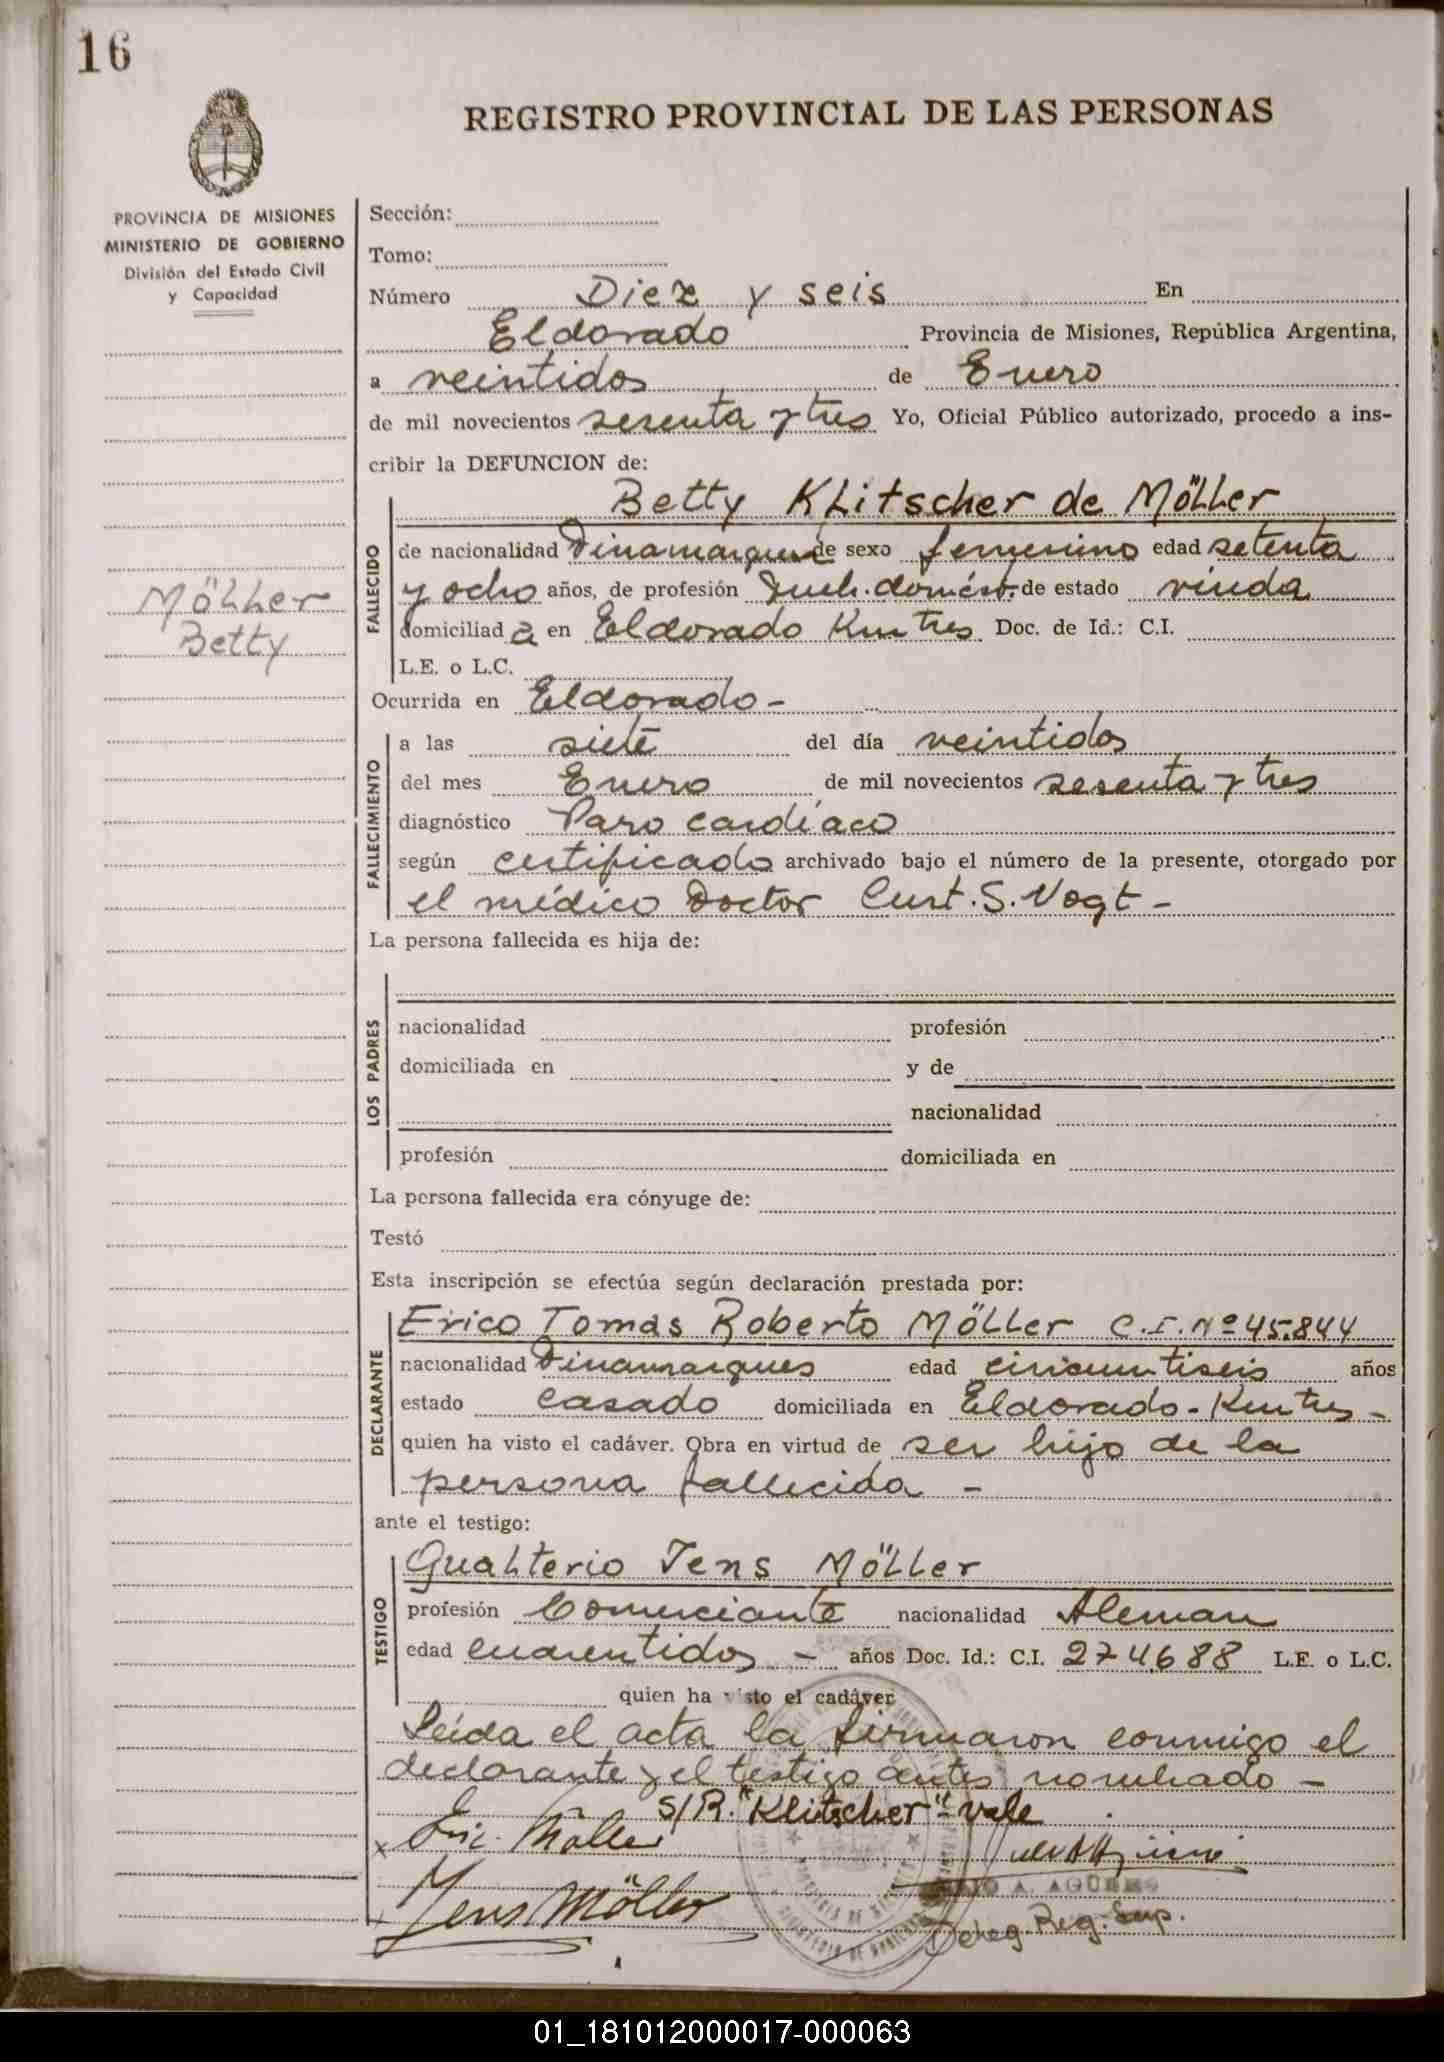 16
REGISTRO PROVINCIAL DE LAS PERSONAS
PROVINCIA DE MISIONES
MINISTERIO DE GOBIERNO
División del Estado Civil
y Capacidad
Möller
Betty
Sección:
Tomo:
Número Diez y seis En
Eldorado Provincia de Misiones, República Argentina,
a veintidos de Enero
de mil novecientos sesenta y tres Yo, Oficial Público autorizado, procedo a ins-
cribir la DEFUNCION de:
Betty Klitscher de Möller
FALLECIDO
de nacionalidad Dinamarquesa de sexo femenino edad setenta
y ocho años, de profesión Queh. domést. de estado viuda
domiciliad a en Eldorado Km tres Doc. de Id.: C.I.
L.E. o L.C.
Ocurrida en Eldorado -
FALLECIMIENTO
a las siete del día veintidos
del mes Enero de mil novecientos sesenta y tres
diagnóstico Paro cardíaco
según certificado archivado bajo el número de la presente, otorgado por
el médico Doctor Curt. S. Vogt -
La persona fallecida es hija de:
LOS PADRES
nacionalidad profesión
domiciliada en y de
nacionalidad
profesión domiciliada en
La persona fallecida era cónyuge de:
Testó
Esta inscripción se efectúa según declaración prestada por:
DECLARANTE
Erico Tomas Roberto Möller C.I. Nº 45.844
nacionalidad Dinamarques edad cincuentiseis años
estado casado domiciliada en Eldorado - Km tres -
quien ha visto el cadáver. Obra en virtud de ser hijo de la
persona fallecida -
ante el testigo:
TESTIGO
Gualterio Jens Möller
profesión Comerciante nacionalidad Aleman
edad cuarentidos - años Doc. Id.: C.I. 274.688 L.E. o L.C.
quien ha visto el cadáver
Leída el acta la firmaron conmigo el
declarante y el testigo antes nombrado -
S/R. "Klitscher" - vale
x Eric. Möller
x Jens Möller
A. AGÜERO
Deleg. Reg. Sup.
01_181012000017-000063